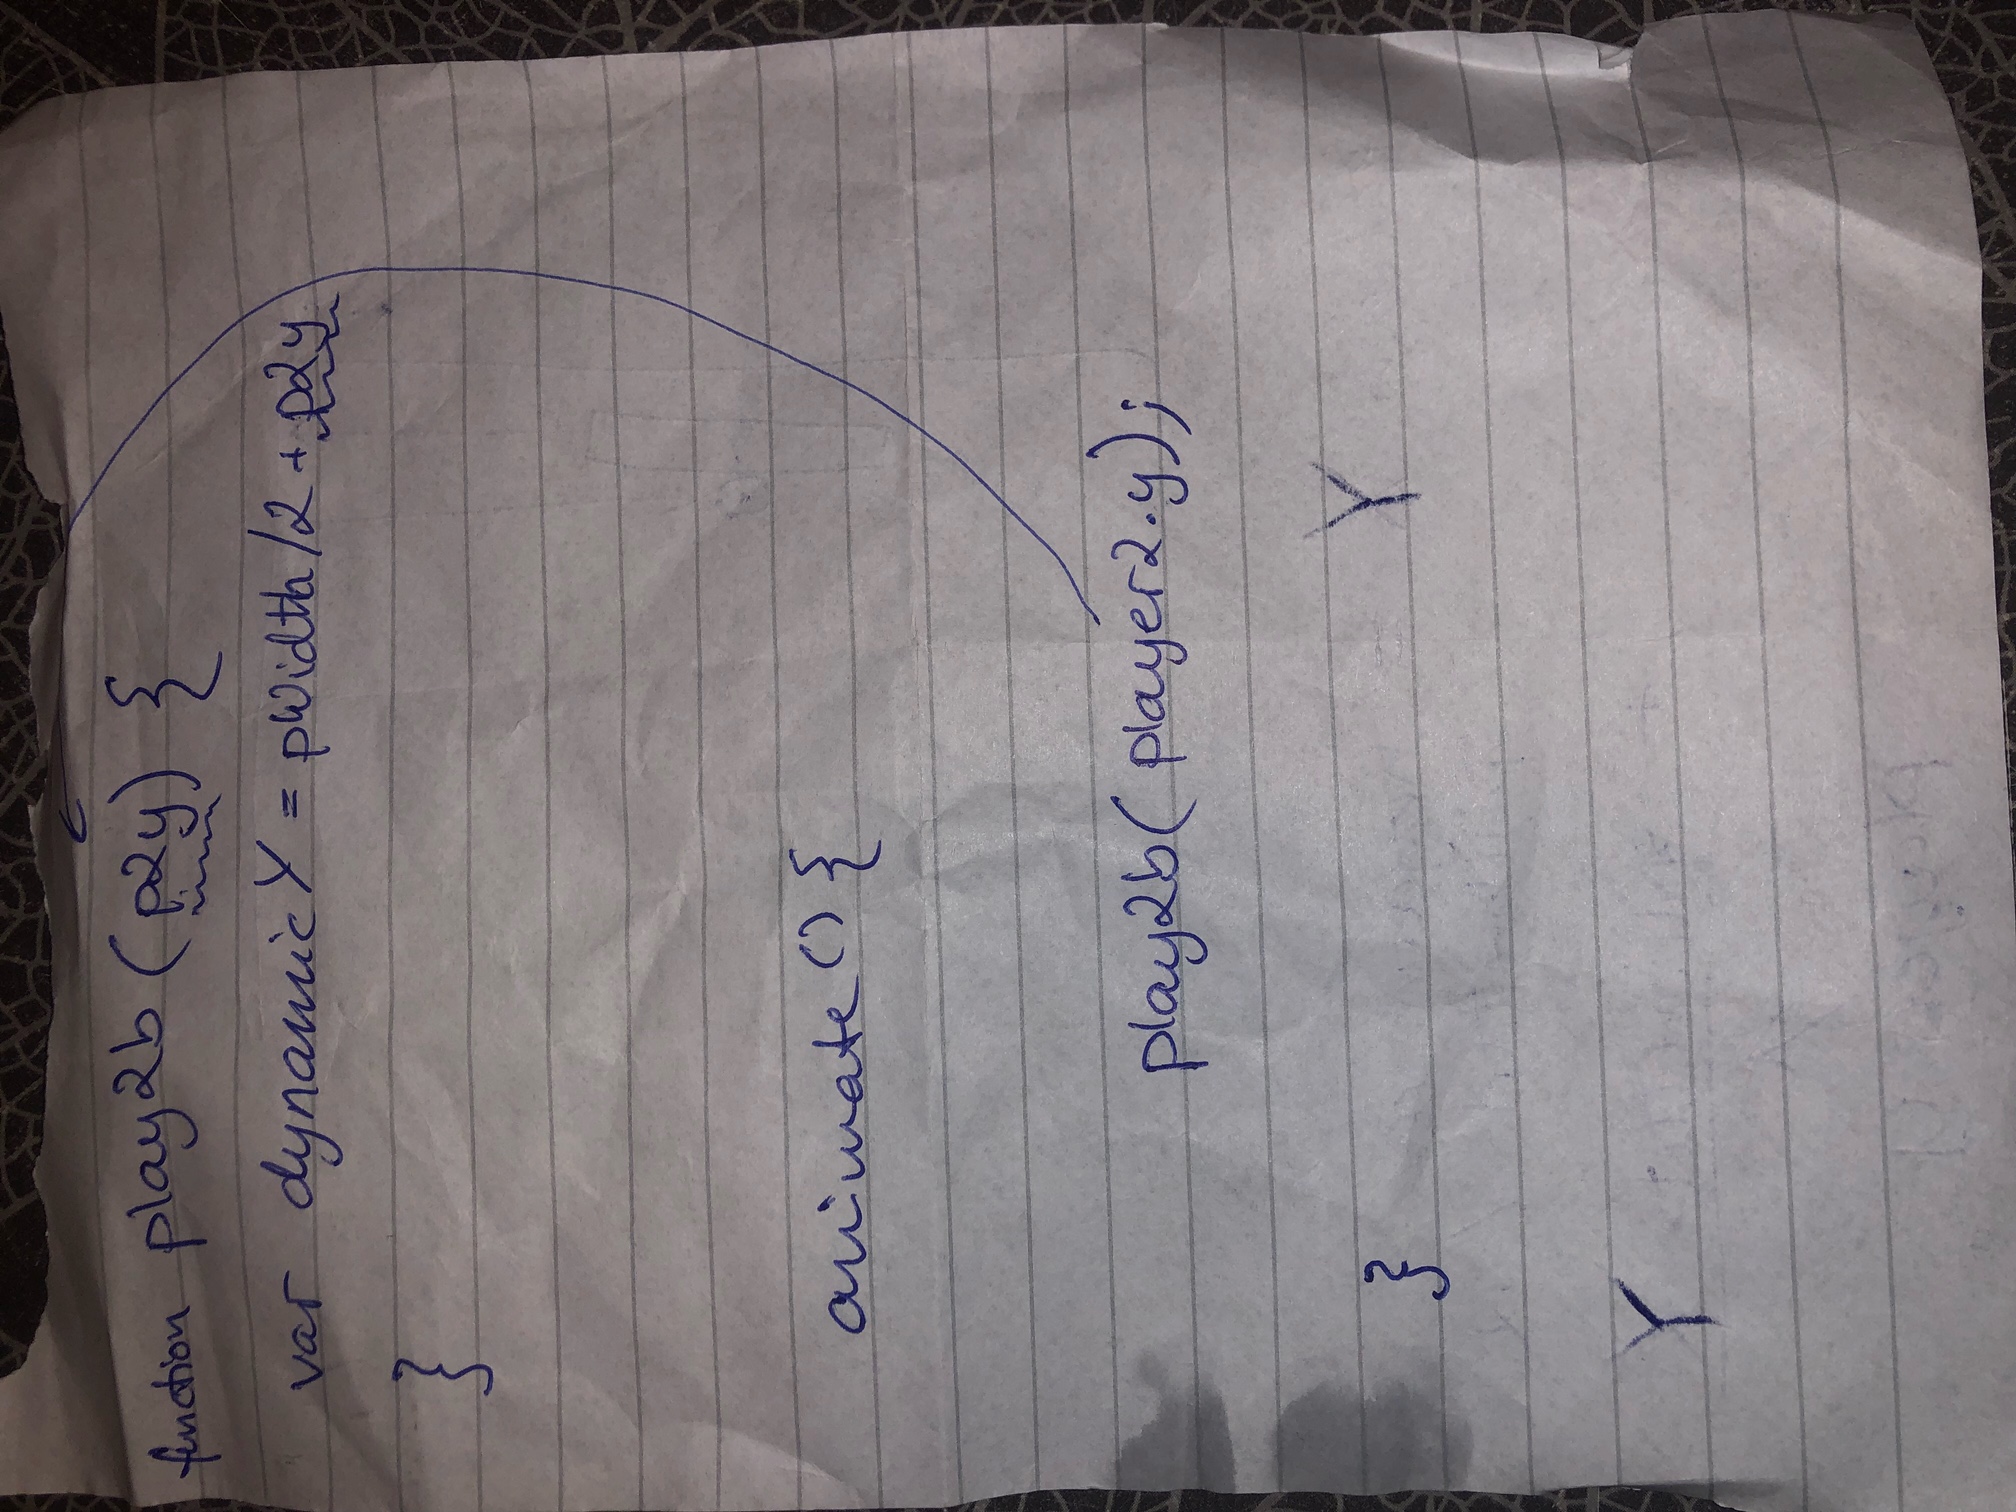 function play2b (p2y) {
var dynamicY = pWidth/2 + p2y
}
animate () {
play2b( player2.y);
Y
}
Y